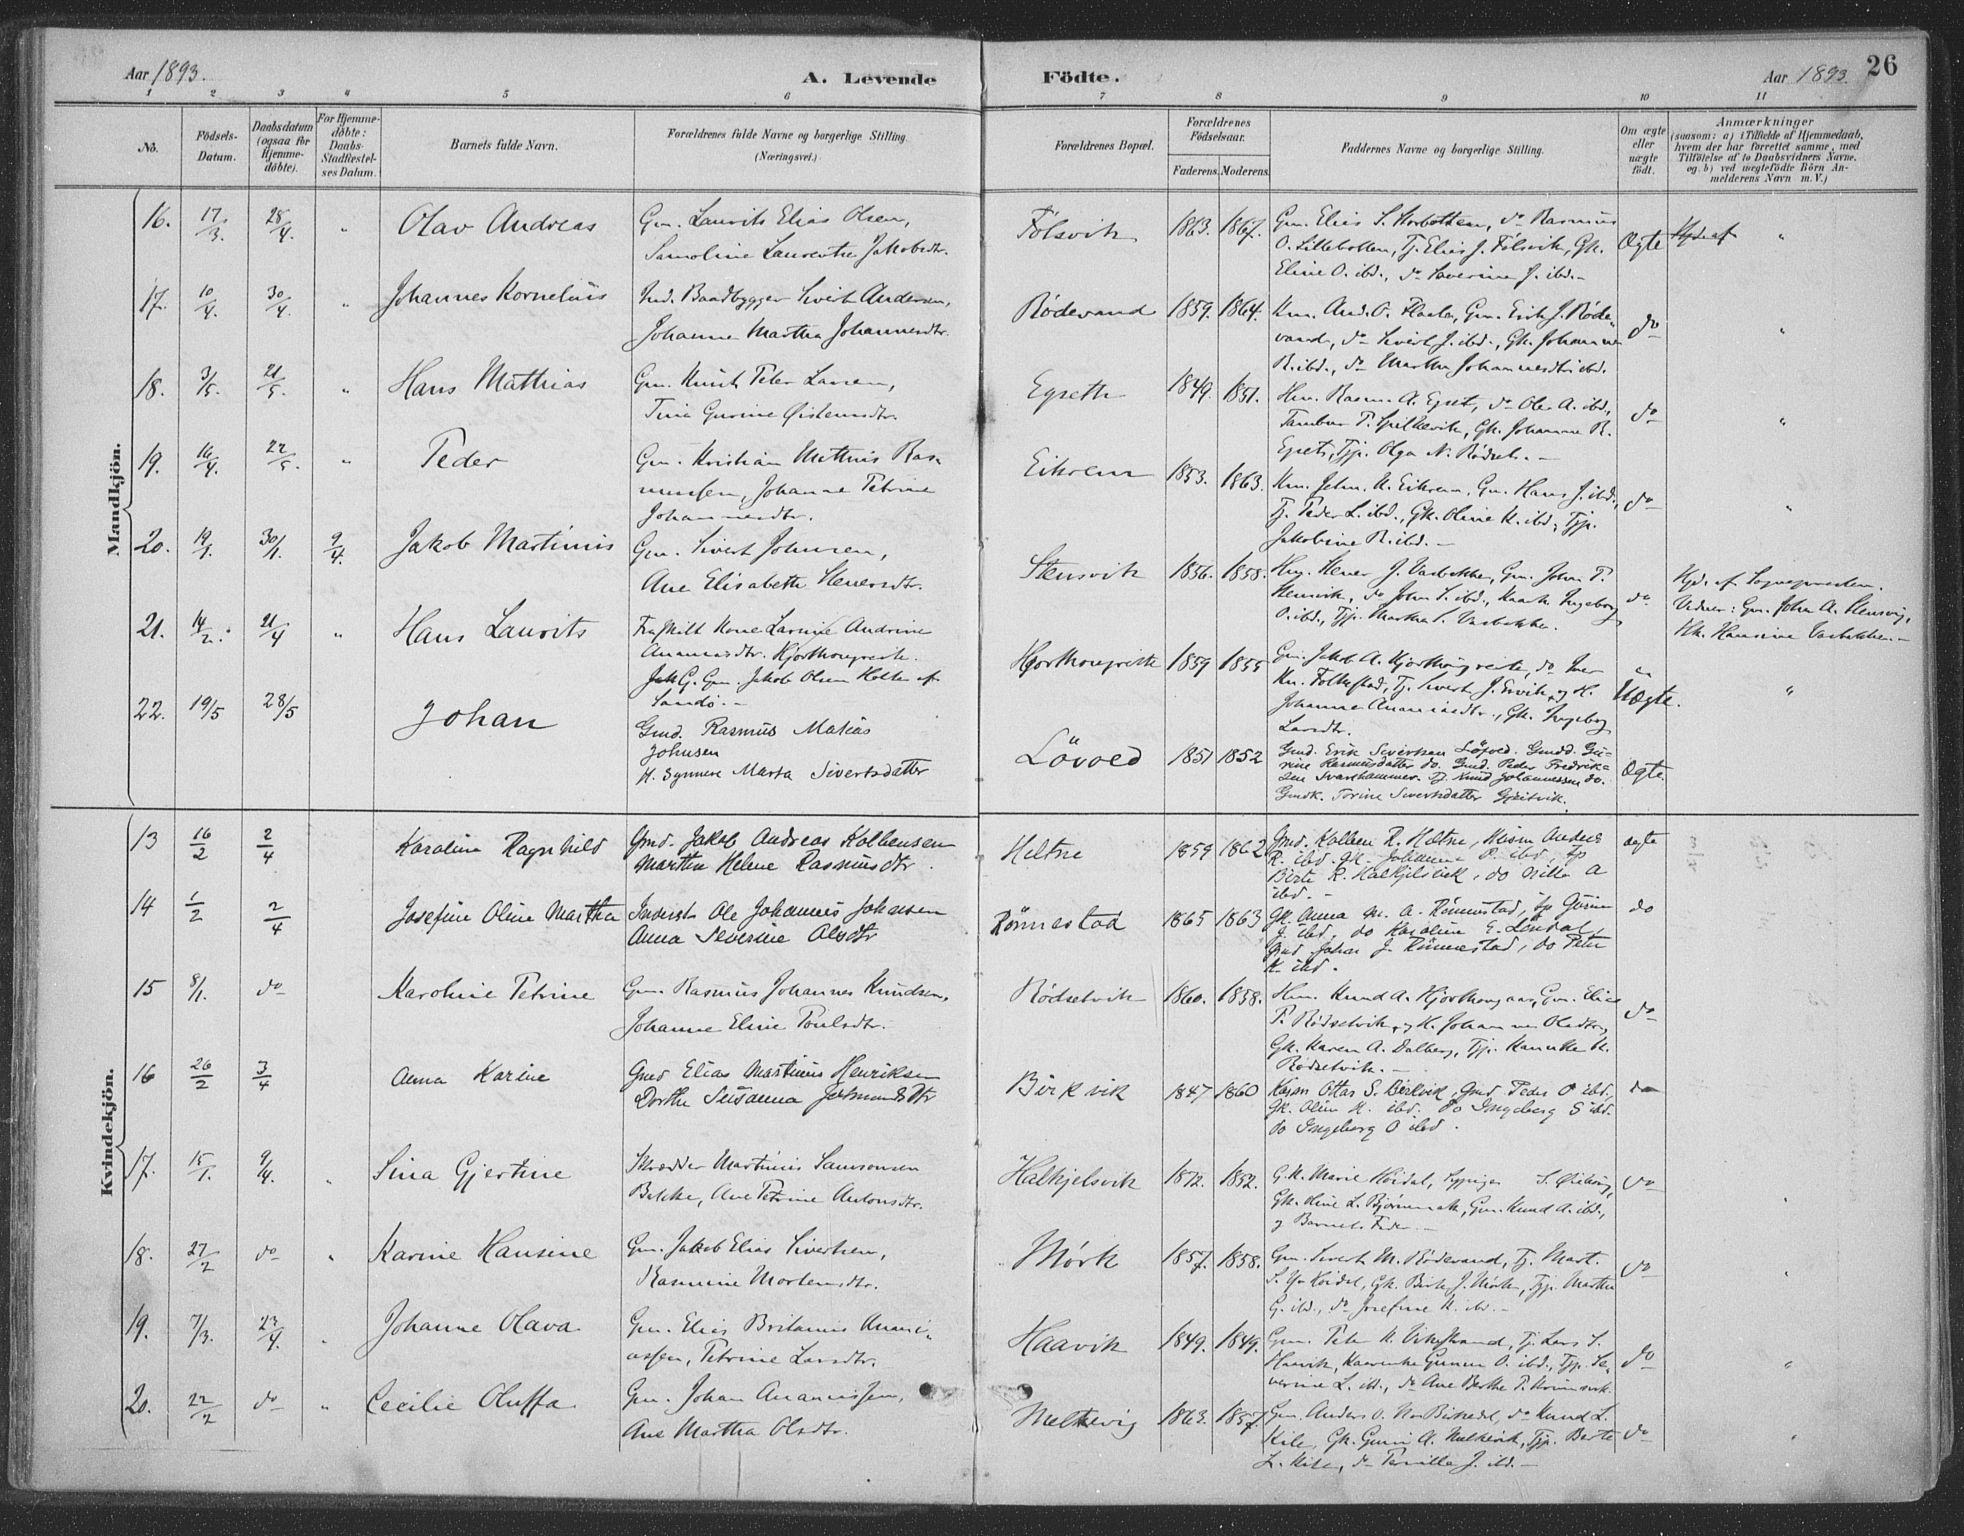 Aar 1893.
A. Levende Födte.
Aar 1893.
26
1 2 3 4 5 6 7 8 9 10 11
No.
Födsels-
Datum.
Daabsdatum
(ogsaa for
Hjemme-
döbte).
For Hjemme-
döbte:
Daabs-
Stadfæstel-
ses Datum.
Barnets fulde Navn.
Forældrenes fulde Navne og borgerlige Stilling.
(Næringsvei.)
Forældrenes Bopæl.
Forældrenes
Födselsaar.
Faderens. Moderens.
Faddernes Navne og borgerlige Stilling.
Om ægte
eller
uægte
født.
Anmærkninger
(saasom: a) i Tilfælde af Hjemmedaab,
hvem der har forrettet samme, med
Tilföielse af to Daabsvidners Navne,
og b) ved uægtefödte Börn An-
melderens Navn m. V.)
Mandkjön.
16. 17/3. 28/4. " Olav Andreas
Gm. Laurits Elias Olsen,
Samoline Laurentse Jakobsdtr.
Følsvik 1863. 1867.
Gm. Elias S. Storbotten, do Rasmus
O. Lillebotten, Tj. Elias J. Følsvik, Gk.
Eline O. ibd., do Severine J. ibd.
Ægte "
17. 10/4. 30/4. " Johannes Kornelius
Ind. Baadbygger Sivert Andersen,
Johanne Martha Johannesdtr.
Rødevand 1859. 1864.
Km. And. O. Gm. Erik J. Røde-
vand, do Sivert J. ibd., Gk. Johanne
R. ibd., do Martha Johannesdtr ibd.
do "
18. 3/5. 21/5. " Hans Mathias
Gm. Knut Peter Larsen,
Tina Gurine Øistensdtr.
Egseth 1849. 1851.
Hm. Rasm. A. Egset, do Ole A. ibd.,
Tambur P. Spilkevik, Gk. Johanne R.
Egset, Tjp. Olga N. Rødset.
do "
19. 16/4. 22/5. " Peder
Gm. Kristian Mathias Ras-
mussen, Johanne Petrine
Johannesdtr.
Eikrem 1853. 1863.
Km. John. K. Eikrem, Gm. Hans J. ibd.,
Tj. Peder L. ibd., Gk. Oline K. ibd., Tjp.
Jakobine R. ibd.
do "
20. 19/1. 30/1. 9/4. Jakob Martinus
Gm. Sivert Johnsen,
Ane Elisabeth Steneresdtr.
Stensvik 1856. 1858.
Hm. Stener J. Vasbakken, Gm. John P.
Stensvik, do John S. ibd., Ingeborg
O. ibd., Tjp. Martha S. Vasbakken.
do
Hjd. af Sognepresten.
Vidner: Gm. John A. Stensvig,
Hansine Vasbakken.
21. 14/2. 21/4 " Hans Laurits
Fraskilt Kone Lavine Andrine
Ananiasdtr. Hjorthougreite.
G. Gm. Jakob Olsen Holte af
Sandø.
Hjorthougreite 1859 1855
Gm. Jakob A. Hjorthougreite, do Iver
Kn. Folkestad, Tj. Sivert J. Ervik, og H.
Johanne Ananiasdtr., Gk. Ingeborg
Larsdtr.
Uægte. "
22. 19/5 28/5 Johan
Gmd. Rasmus Matias
Johnsen
H. Synnere Marta Sivertsdatter
Lövoed 1851 1852
Gmd. Erik Sivertsen Löfoed. Gmdd. Gu-
rine Rasmusdatter do. Gmd. Peder Fredrik-
sen Svarthammer. Tj. Knud Johannessen do.
Gmdk. Torine Sivertsdatter Gjeitvik.
Ægte.
Kvindekjön.
13 16/2 2/4 Karoline Ragnhild
Gmd. Jakob Andreas Kolbensen
Marthe Helene Rasmusdtr.
Heltne 1859 1862
Gmd. Kolben R. Heltne, Anders
R. ibd. Gk. Johanne O. ibd., Tp
Birte R. Halkjelsvik, do Nille A
ibd.
ægte
14 1/2 2/4 Josefine Oline Martha
Inderst Ole Johannes Johansen
Anna Severine Olsdtr
Rönnestad 1865 1863
Gk. Anna M. A. Rönnestad, tp Gurine
J. ibd. do Karoline E. Löndal,
Gmd. Johan J. Rönnestad, do Peter
K. ibd.
do
15 8/1. do Karoline Petrine
Gm. Rasmus Johannes Knudsen,
Johanne Eline Poulsdtr.
Rødsetvik 1860. 1858.
Hm. Knud A. Hjorthougaas, Gm. Elias
P. Rødsetvik, og H. Johanne Olsdtr,
Gk. Karen A. Dalberg, Tjp. Hannike K.
Rødsetvik.
do
16 26/2 3/4 Anna Karine
Gmd Elias Martinus Henriksen
Dorthe Susanna Jetmundsdtr
Birkvik 1847 1860
Kaarm Ottar S. Birkvik, Gmd Peder O ibd.,
Gk. Oline K. ibd. do Ingeborg S ibd.
do Ingeborg O ibd.
do
17. 15/1. 9/4. " Sina Gjertine
Skrædder Martinus Samsonsen
Bekke, Ane Petrine Antonsdtr.
Halkjelsvik 1872. 1852.
G.K. Marie Høidal, S. Øieberg,
Gk. Line L. Bjørnenak, Gm. Knud A. ibd.,
og Barnets Fader.
do "
18. 27/2 do " Karine Hansine
Gm. Jakob Elias Sivertsen,
Rasmine Mortensdtr.
Mørk 1857. 1858.
Gm. Sivert M. Rødevand, Tj. Mart.
S. Yt. Høidal, Gk. Birte J. Mørk, Tjp. Marthe
G. ibd., do Josefine K. ibd.
do "
19. 7/3. 23/4. " Johanne Olava
Gm. Elias Britanus Anani-
assen, Petrine Larsdtr.
Haavik 1849. 1849.
Gm. Peter K. Vikestrand, Tj. Lars S.
Haavik, Gunnen O. ibd., Tjp. Se-
verine L. ibd., do Ane Berthe P.
do "
20. 22/2 do " Cecilie Oluffa
Gm. Johan Ananiassen,
Ane Martha Olsdtr.
Melkevig 1863. 1857.
Gm. Anders O. Birkedal, do Knud L.
Kile, Gk. Guri A. Melkevik, Tjp. Berte
L. Kile, do Pernille J. ibd.
do "